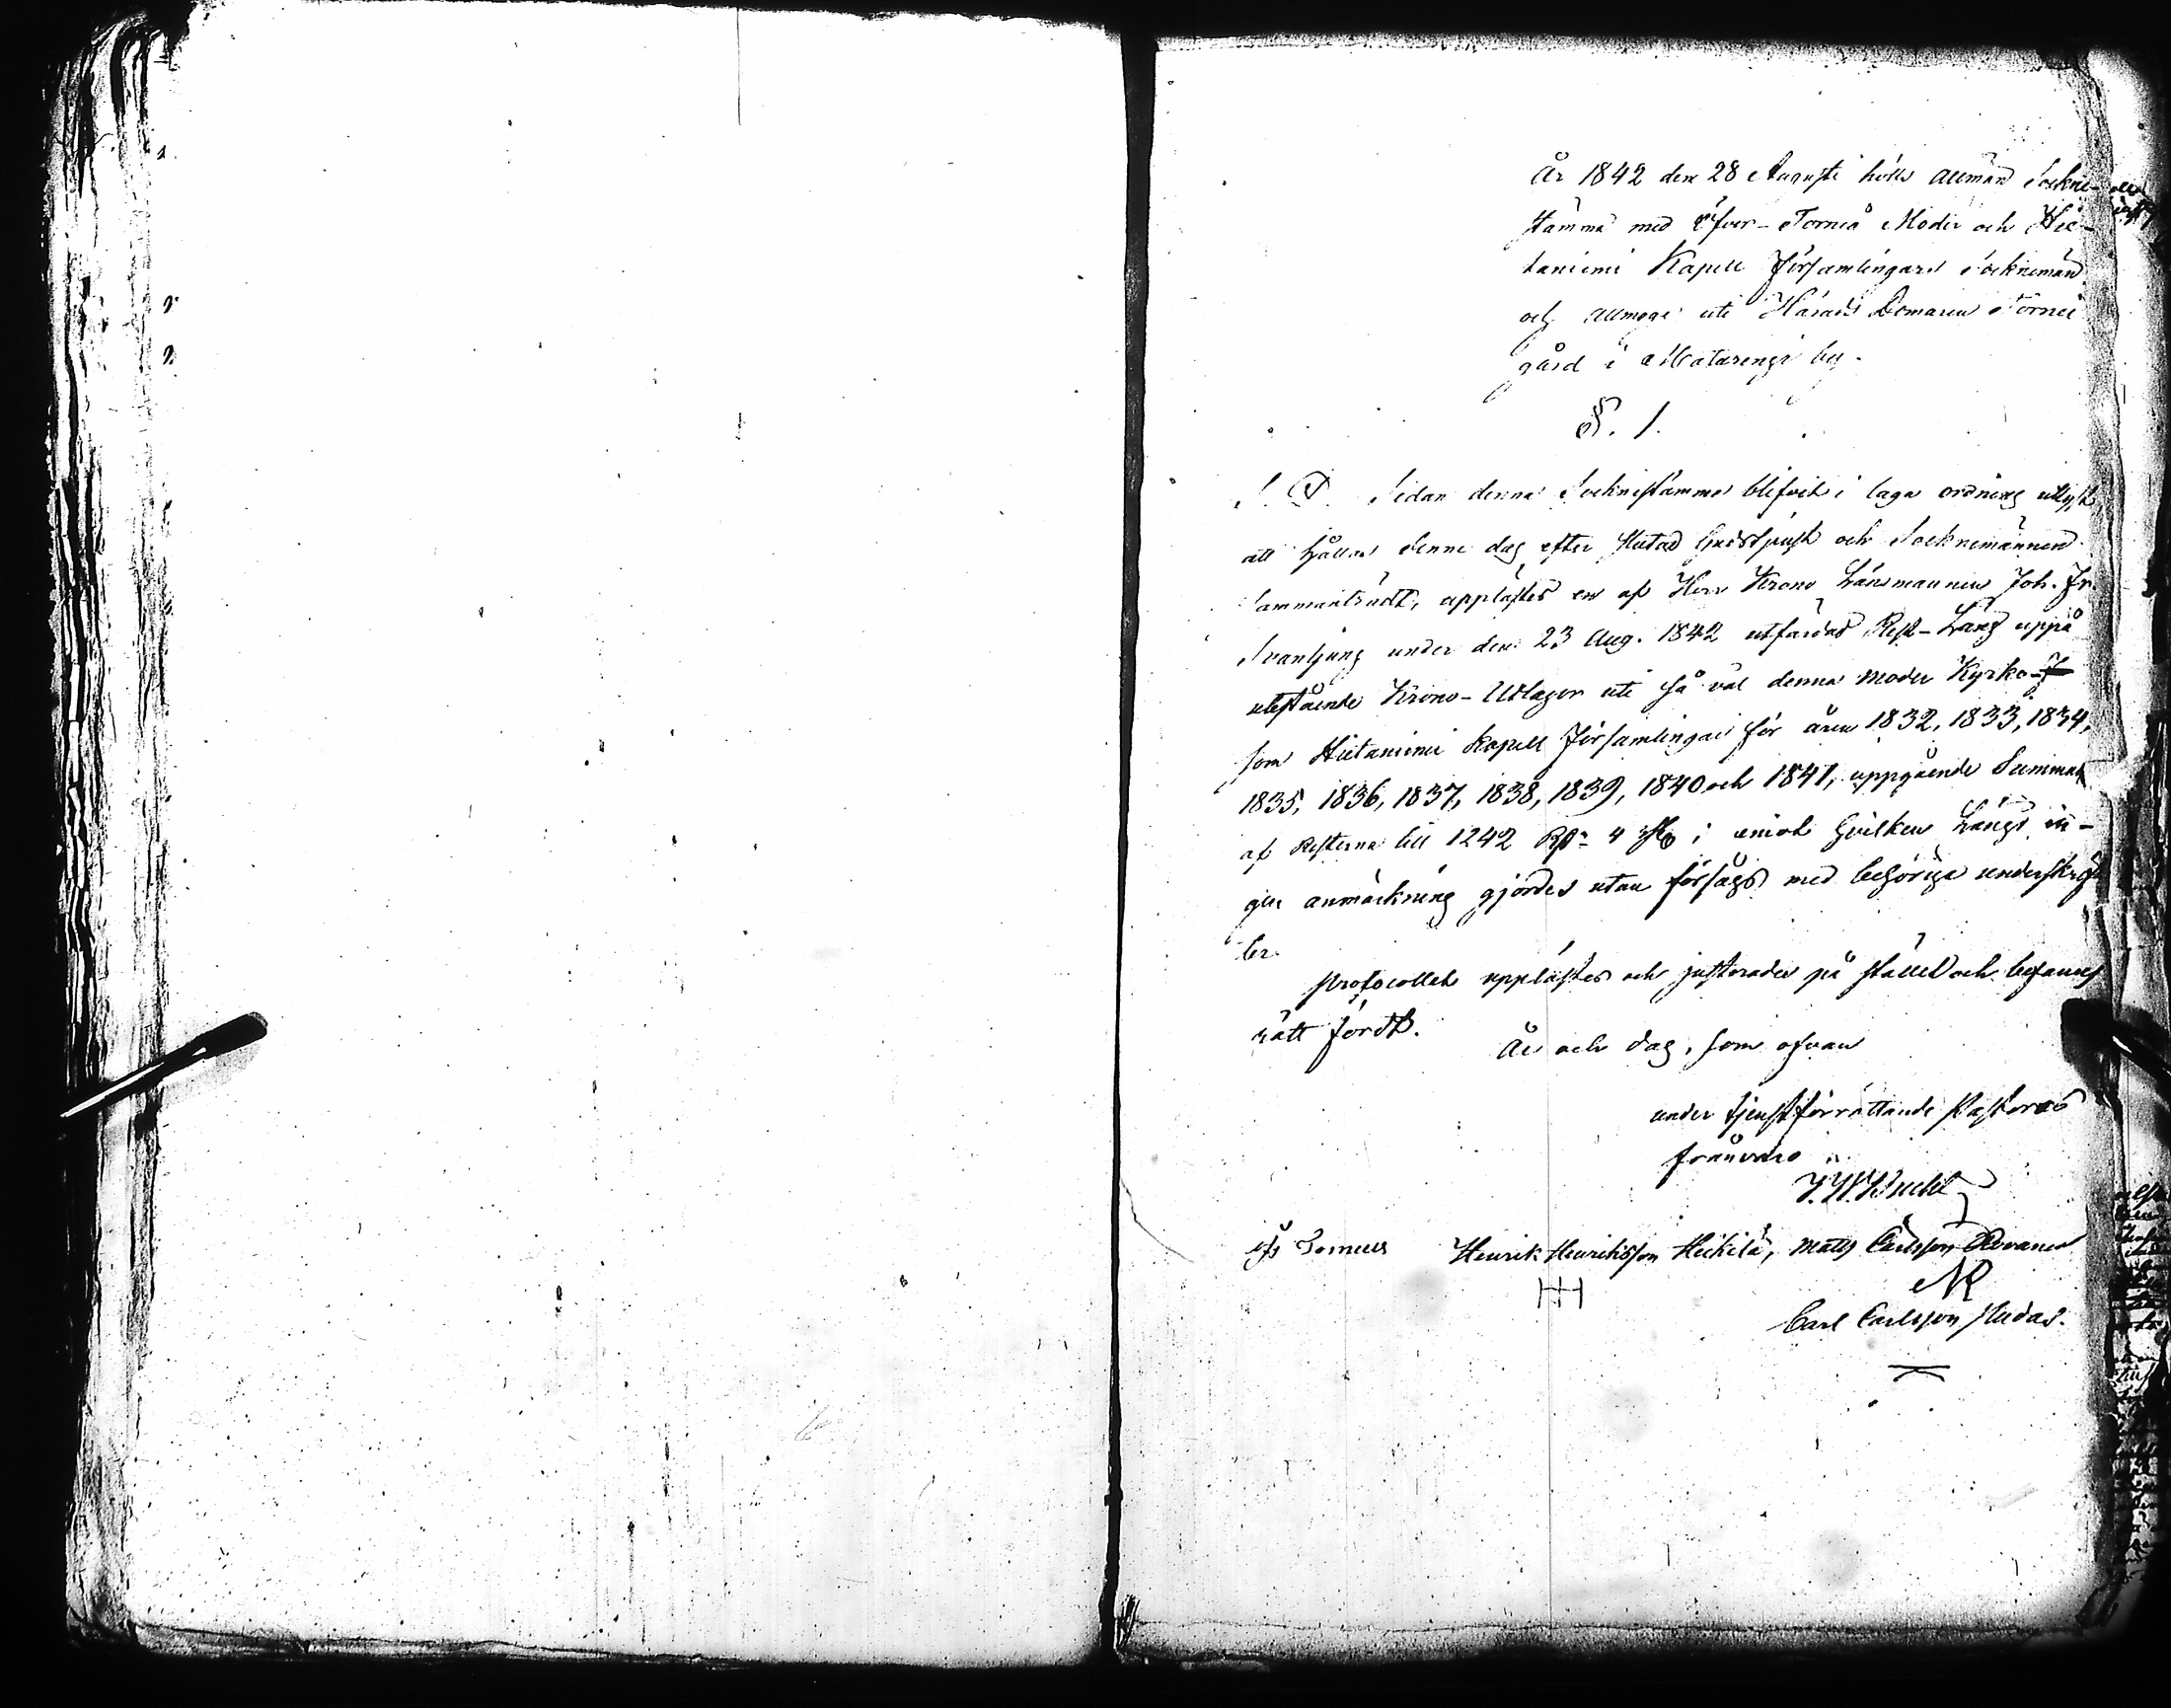 År 1842 den 28 Augusti hölls allmän Sockne-
stämma med Öfver-Torneå Moder och Hie-
taniemi Kapell Församlingars Socknemän
och allmoge uti Härads Domaren Tornei
gård i Matarengi by.
§. 1.
S. D. Sedan denna Socknestämma blifvit i laga ordning utlyst
att hållas denne dag efter slutad Gudstjenst och Socknemännen
sammanträdt, upplästes en af Herr Krono Länsmannen Joh. Fr.
Svanljung under den 23 Aug. 1842 utfärdad Rest-Längd uppå
utestående Krono-Utlagor uti så väl denna moder Kyrko-
som Hietaniemi Kapell Församlingar för åren 1832, 1833, 1834,
1835, 1836, 1837, 1838, 1839, 1840 och 1841, uppgående Summan
af Resterna till 1242 Rd 4 sk; emot hvilken Längd in-
gen anmärkning gjordes utan försågs med behöriga underskrif-
ter.
Protocollet upplästes och justerades på stället och befanns
rätt fördt.
År och dag, som ofvan
under tjenstförrättande Pastorns
frånvaro
Henrik Henriksson Heikilä, Mats Carlsson Rovanen
Carl Carlsson Hedas.